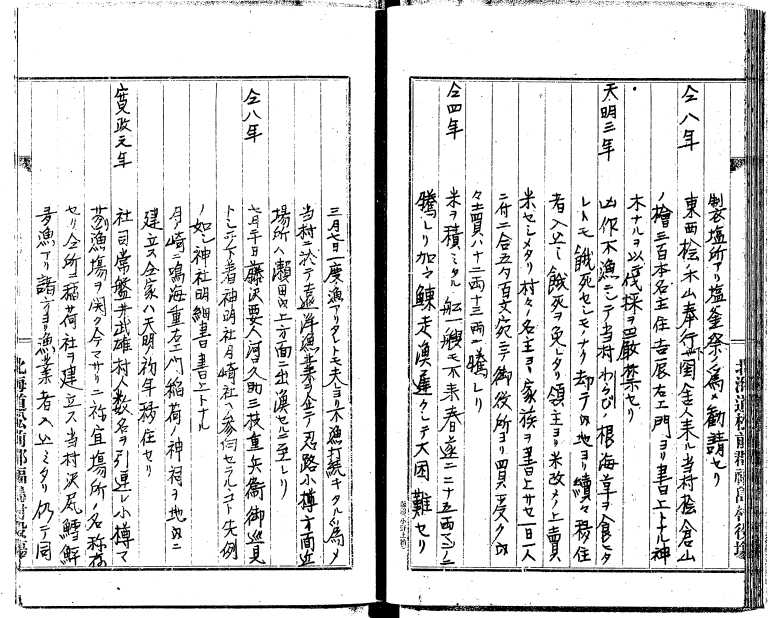 製衣塩所アリ塩釜祭ノ為メ勧請セリ
仝八年
東西桧木山奉行 人来ル当村桧倉山
ノ檜三百本名主住吉辰右エ門ヨリ書上トル神
木ナルヲ以テ伐採ヲ厳禁セリ
天明三年
凶作不漁ニシテ当村わらび根海草ヲ食ヒタ
レトモ餓死セシモノナク却テ 地ヨリ續々移住
者入込ミ餓死ヲ免レタリ領主ヨリ米改メノ上賣
米セシメタリ村々名主ヨリ家族ヲ書上サセ一日一人
ニ付二合五勺百文宛ニテ御役所ヨリ買受ク
々士買八十二両十三両ニ騰レリ
仝四年
米ヲ積ミタル舩一艘モ不来春 ニ二十五両マデニ
騰レリ加之鰊走漁遅クシテ大困難セリ
北海道松前郡福島村役場
三月七日一度漁アリタレトモ夫ヨリ不漁打続キタル為メ
当村ニ於テ遠洋漁業ヲ企テ忍路小樽方面近
場所ハ瀬田内上方面ニ出漁セルニ至レリ
仝八年
七月千日藤沢要人 久助三枝重兵衛御巡見
トシテ下着神明社月崎社ヘ参向セラルコト先例
ノ如シ神社明細書書上トナル
月崎ニ鳴海重右エ門稲荷ノ神祠ヲ地内ニ
建立ス仝家ハ天明初年移住セリ
寛政元年
社司常盤井武雄村人数名ヲ引連レ小樽マ
デ漁場ヲ開ク今マサリニ祢宜場所ノ名称存
セリ仝所ニ稲荷社ヲ建立ス当村沢 鱈鮮
多漁アリ諸方ヨリ漁業者入込ミタリ仍テ同
北海道松前郡福島村役場